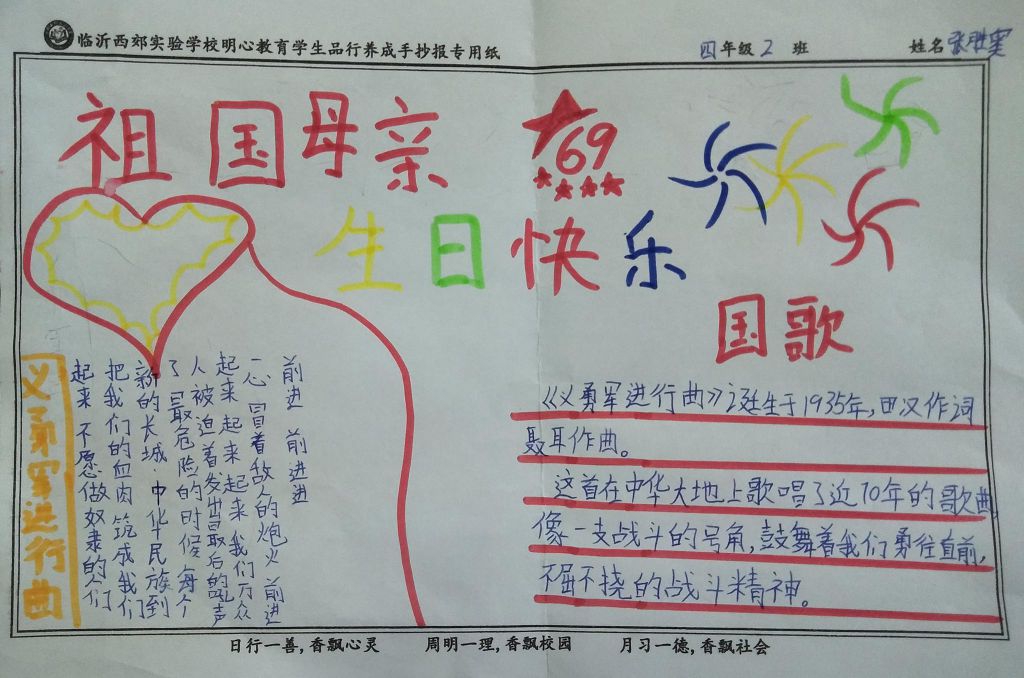 临沂西郊实验学校明心教育学生品行养成手抄报专用纸
四年级2班 姓名
祖国母亲
69
生日快乐
国歌
义勇军进行曲
起来 不愿做奴隶的人们
把我们的血肉 筑成我们
新的长城·中华民族到
了 最危险的时候 每个
人被迫着发出最后的吼声
起来 起来 起来 我们万众
一心 冒着敌人的炮火 前进
前进 前进进
《义勇军进行曲》诞生于1935年,田汉作词
聂耳作曲。
这首在中华大地上歌唱了近70年的歌曲
像一支战斗的号角,鼓舞着我们勇往直前,
不屈不挠的战斗精神。
日行一善,香飘心灵 周明一理,香飘校园 月习一德,香飘社会